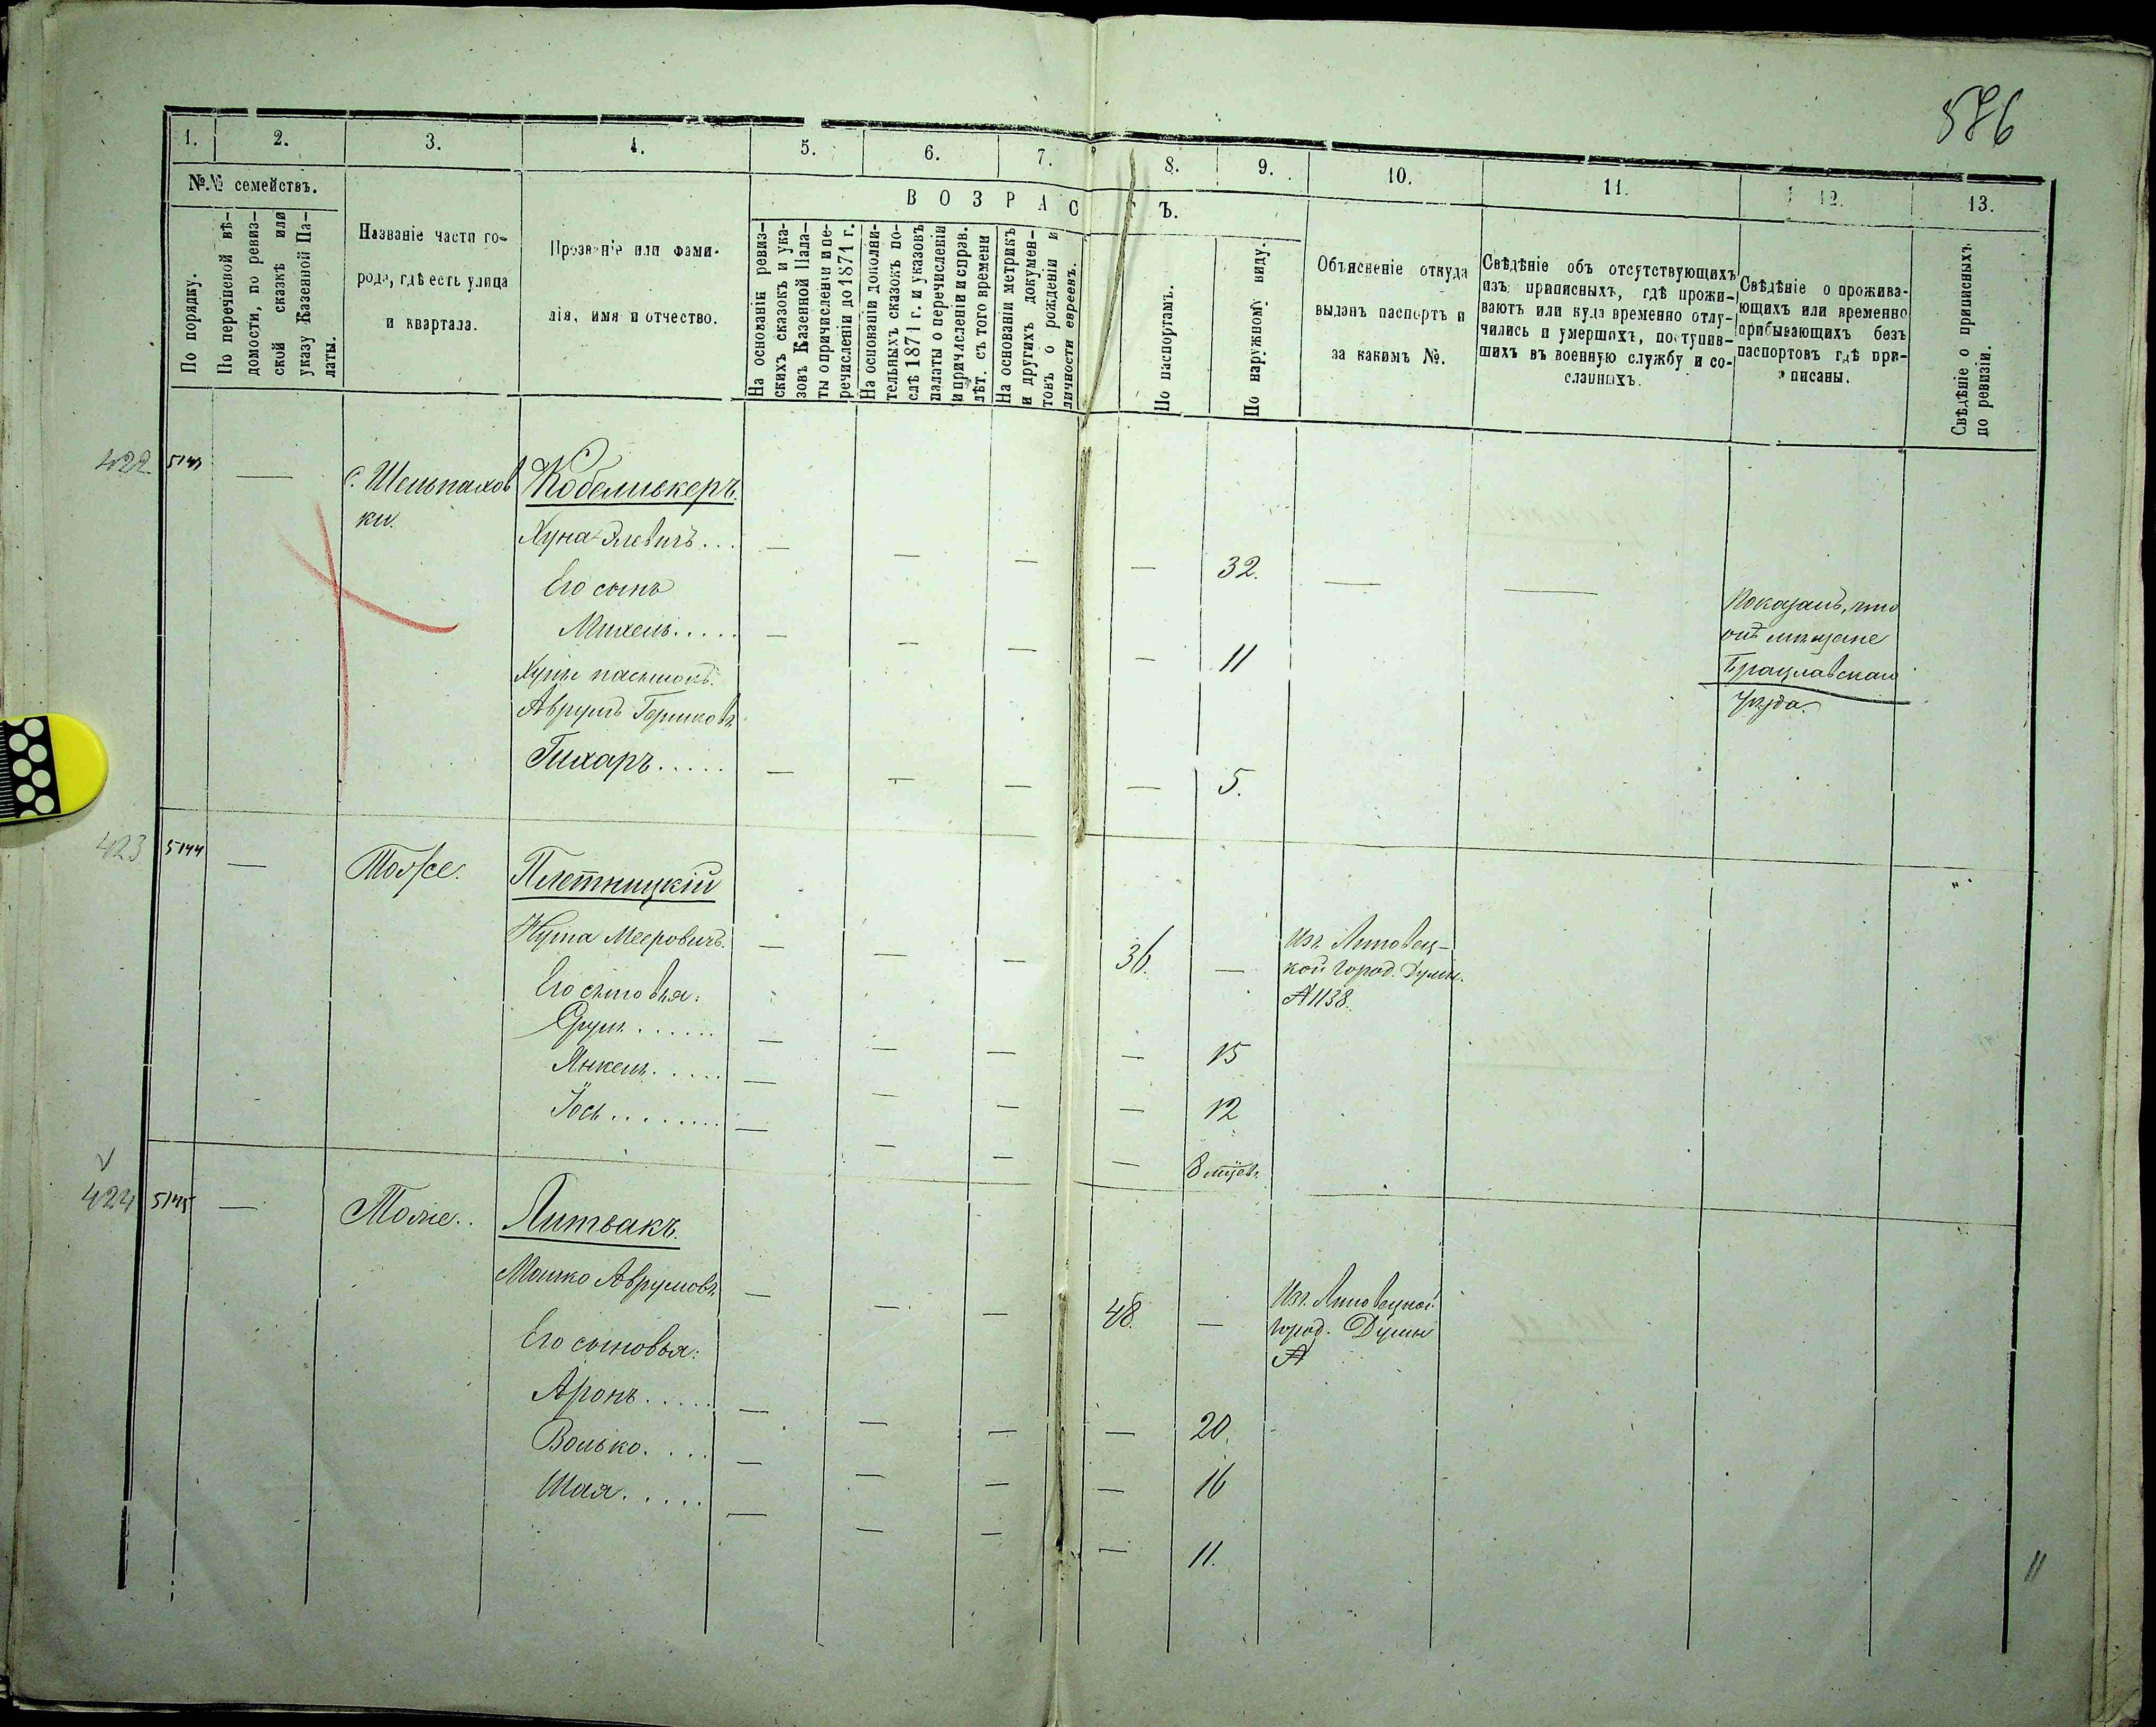 586
1. 2. 3. 4. 5. 6. 7. 8. 9. 10. 11. 12. 13.
№№ семействъ.
По порядку.
По перечневой вѣ-
домости, по ревиз-
ской сказкѣ или
указу Казенной Па-
латы.
Названіе части го-
рода, гдѣ есть улица
и квартала.
Прозваніе или фами-
лія, имя и отчество.
ВОЗРАСТЪ.
На основаніи ревиз-
скихъ сказокъ и ука-
зовъ Казенной Пала-
ты о причисленіи и пе-
речисленіи до 1871 г.
На основаніи дополни-
тельныхъ сказокъ по-
слѣ 1871 г. и указовъ
палаты о перечисленіи
и причисленіи и справ.
лѣт. съ того времени
На основаніи метрикъ
и другихъ докумен-
товъ о рожденіи и
личности евреевъ.
По паспортамъ.
По наружному виду.
Объясненіе откуда
выданъ паспортъ и
за какимъ №.
Свѣдѣніе объ отсутствующихъ
изъ приписныхъ, гдѣ прожи-
ваютъ или куда временно отлу-
чились и умершихъ, поступив-
шихъ въ военную службу и со-
сланныхъ.
Свѣдѣніе о прожива-
ющихъ или временно
прибывающихъ безъ
паспортовъ гдѣ при-
писаны.
Свѣдѣніе о приписныхъ
по ревизіи.
422 5143 — с. Шельпахов
ки.
Кобеливкеръ.
Хуна Элевичъ... — — — — 32. — —
Его сынъ
Михель..... — — — — 11
Хуны пасынокъ.
Аврумъ Гершковъ
Гихаръ..... — — — — 5.
Показалъ, что
онъ мѣщане
Брацлавскаго
Уѣзда.
423 5144 — Тоже. Плетницкій
Нута Мееровичъ. — — — 36. —
Изъ Липовец-
кой город. Думы.
№ 1138.
Его сыновья:
Срул...... — — — — 15
Янкель..... — — — — 12
Іось....... — — — — 8 мѣсяц.
424 5145 — Тоже.. Литвакъ.
Мошко Аврумовъ — — — 48. —
Изъ Липовецкой
город. Думы
№
Его сыновья:
Аронъ..... — — — — 20.
Волько.... — — — — 16
Шая..... — — — — 11.
11